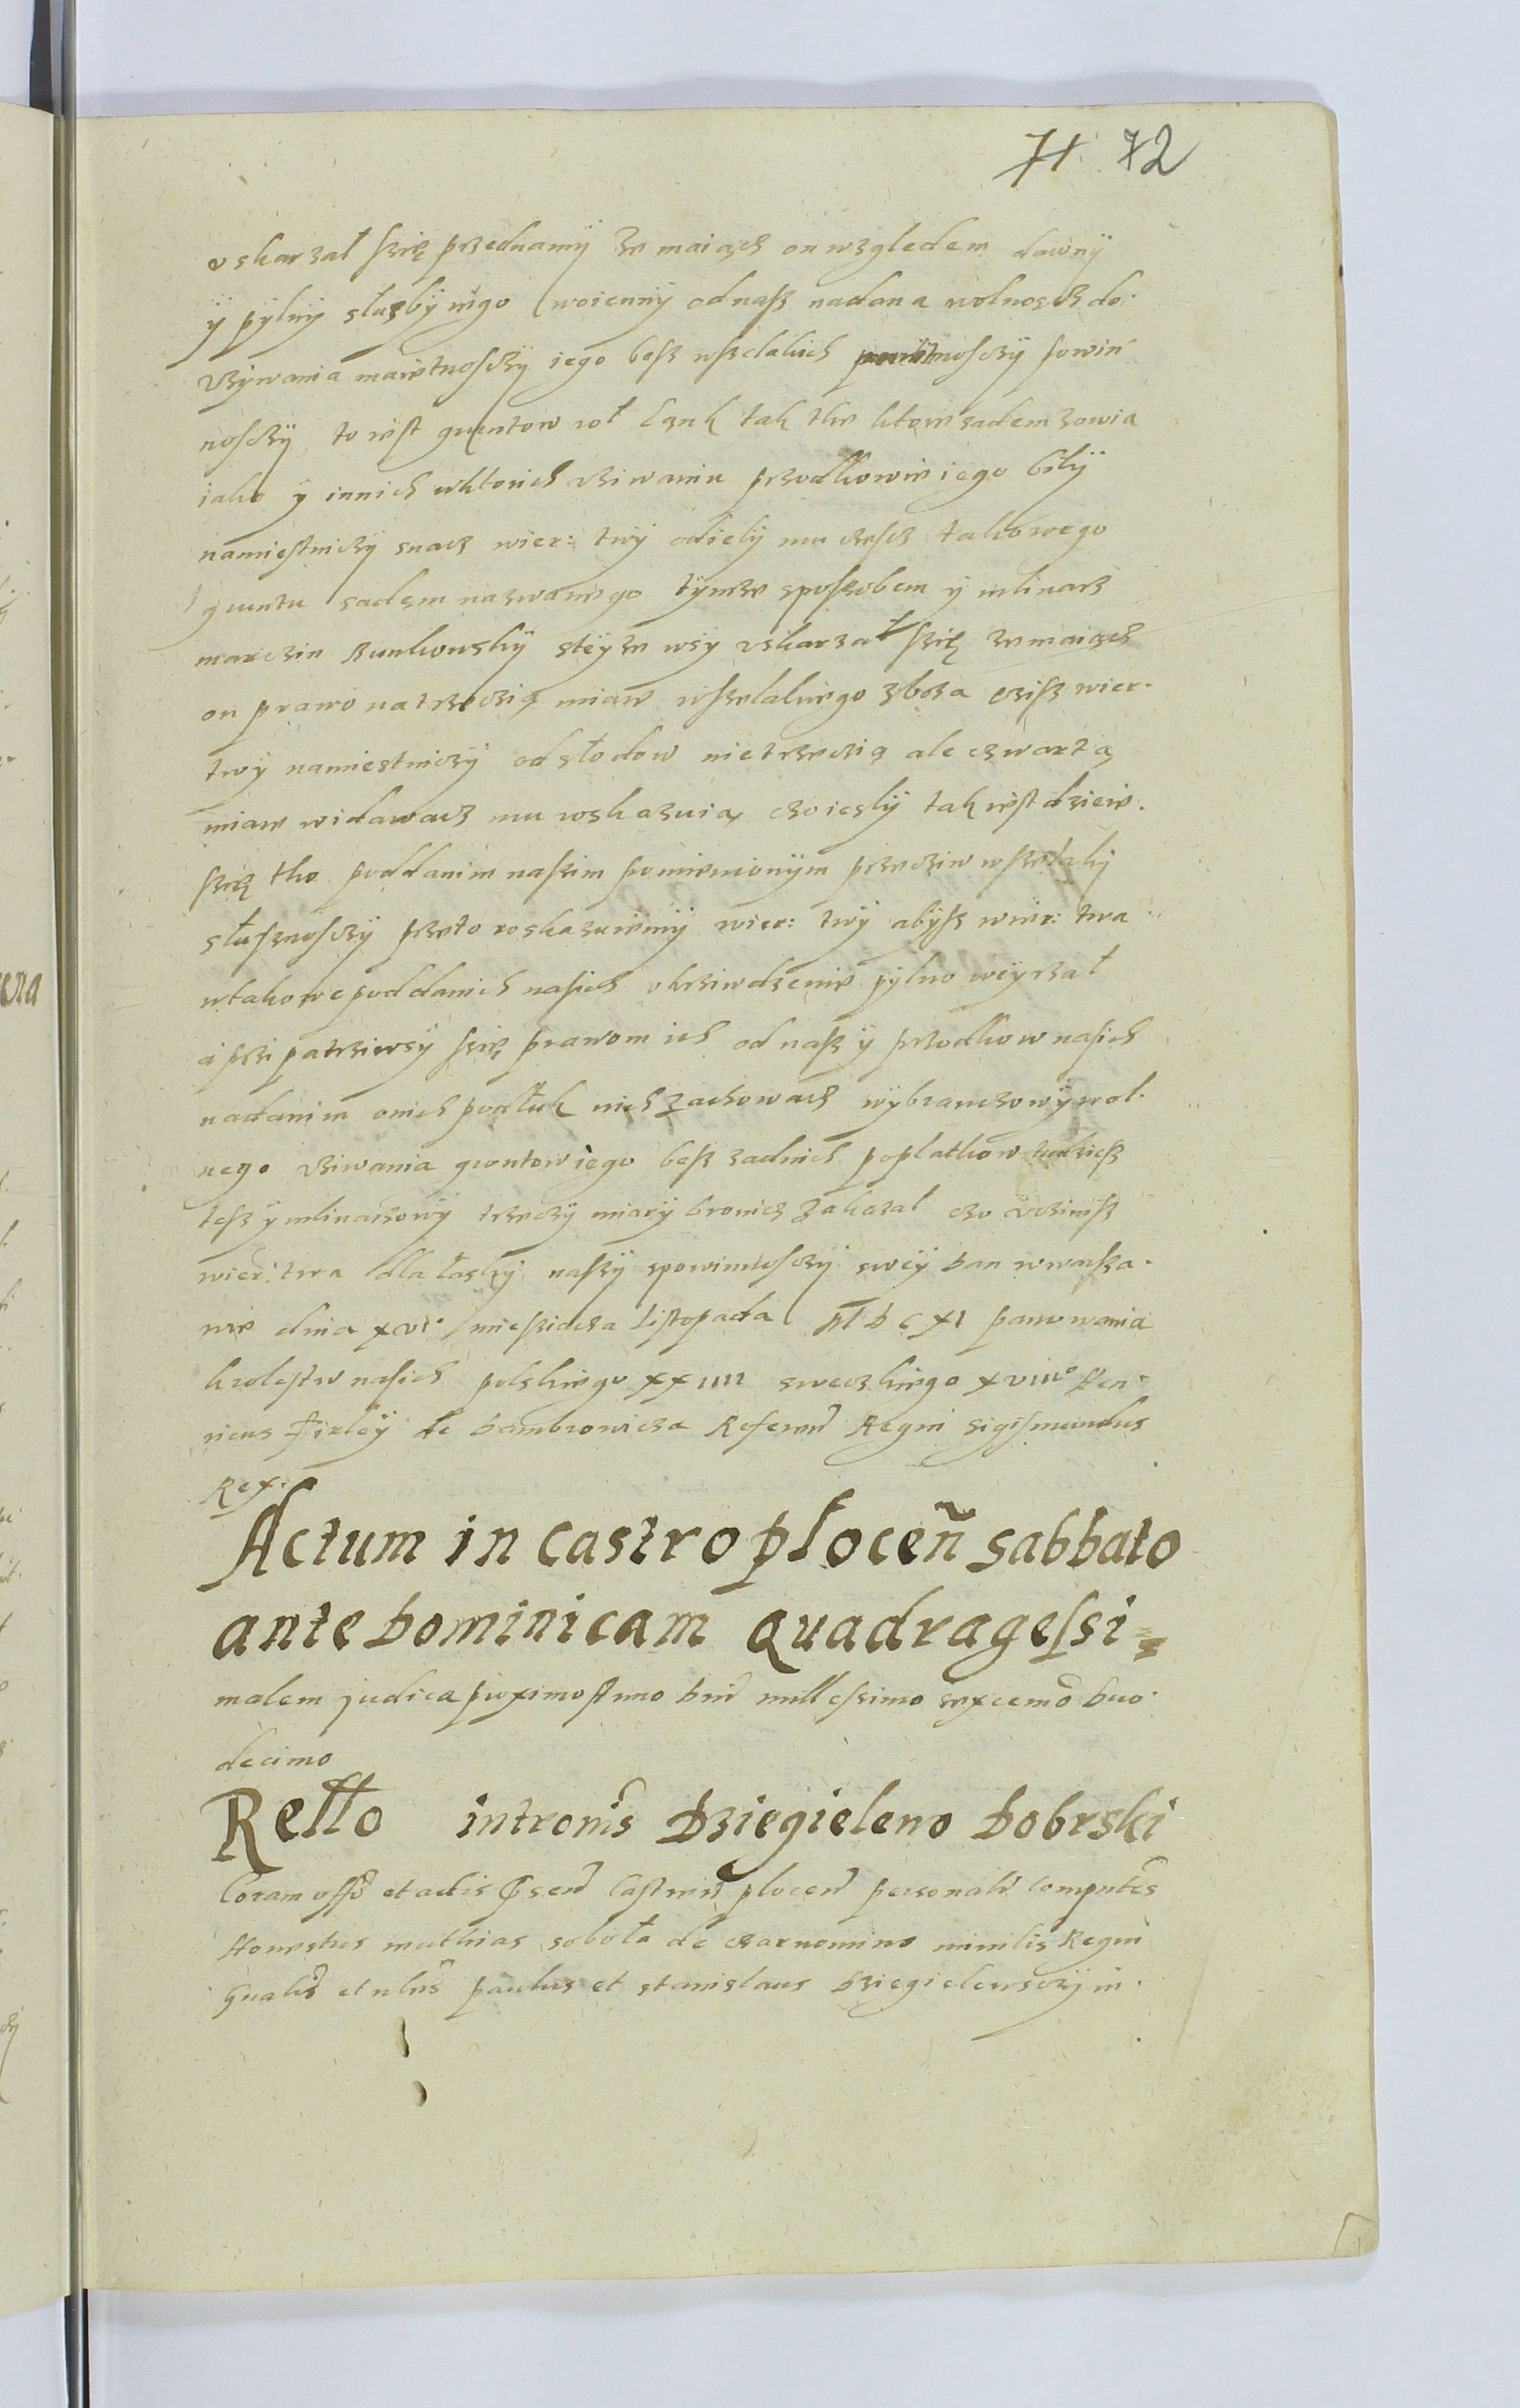 71 72
uskarzał szię przednamÿ że maiącz on wzgledem dawnÿ
ÿ pÿlnÿ służbÿ iego woiennÿ od nasz nadana wolnoscz do
użÿwania maietnosczÿ iego besz wszelakich powin
nosczÿ to iest gruntow rol Łąnk tak the ktore sadem zowia
iako ÿ innich wktorich uziwaniu przodkowie iego bilÿ
namiestniczÿ snacz wier: twÿ odielÿ mu czescz takowego
gruntu sadem nazwanego tÿmże sposzobem ÿ mlinarz
marczin Bunkowskÿ steÿże wsÿ uskarzał szię że maiącz
on prawo na trzeczią miare wszelakiego zboża czisz wier.
twÿ namiestniczÿ od słodow nie trzeczią ale czwartą
miare widawacz mu roskazuią czo ieslÿ tak iest dzieie.
szię tho poddanim naszim pomienionÿm przecziw wszelakÿ
słusznosczÿ przeto roskazuiemÿ wier: twÿ abÿsz wier: twa
wtakowe poddanich nasich ukrziwdzenie pÿlno weÿrzał
a przipatrziwsÿ szię prawom ich od nasz ÿ przodkow nasich
nadanim onich podłuk nich zachowacz wÿbranczowÿ wol.
nego uziwania gruntow iego besz zadnich poplatkow takiesz
tesz ÿ mlinarzowÿ trzeczÿ miarÿ bronicz zakazal czo uczinisz
wier: twa dla łaskÿ naszÿ spowinnosczÿ sweÿ Dan wwarsza.
wie dnia XVI° mieszicza Listopada M D C XI panowania
krolestw nasich polskiego XXIIII sweczkiego XVIII° Hen
ricus Firleÿ de Dambrowicza Referen Regni Sigismundus
Rex.
Actum in Castro płoceñ sabbato
ante Dominicam Quadragessi=
malem Judica proximo Anno Dni millessimo sexcento Duo
decimo
Rello intromis Dziegieleno Dobrski
Coram offo et actis Psen Castren plocen personalr comparens
Honestus mathias sobota de czarnomino minilis Regni
Gnalis et nbles paulus et stanislaus Dziegielewsczÿ in.